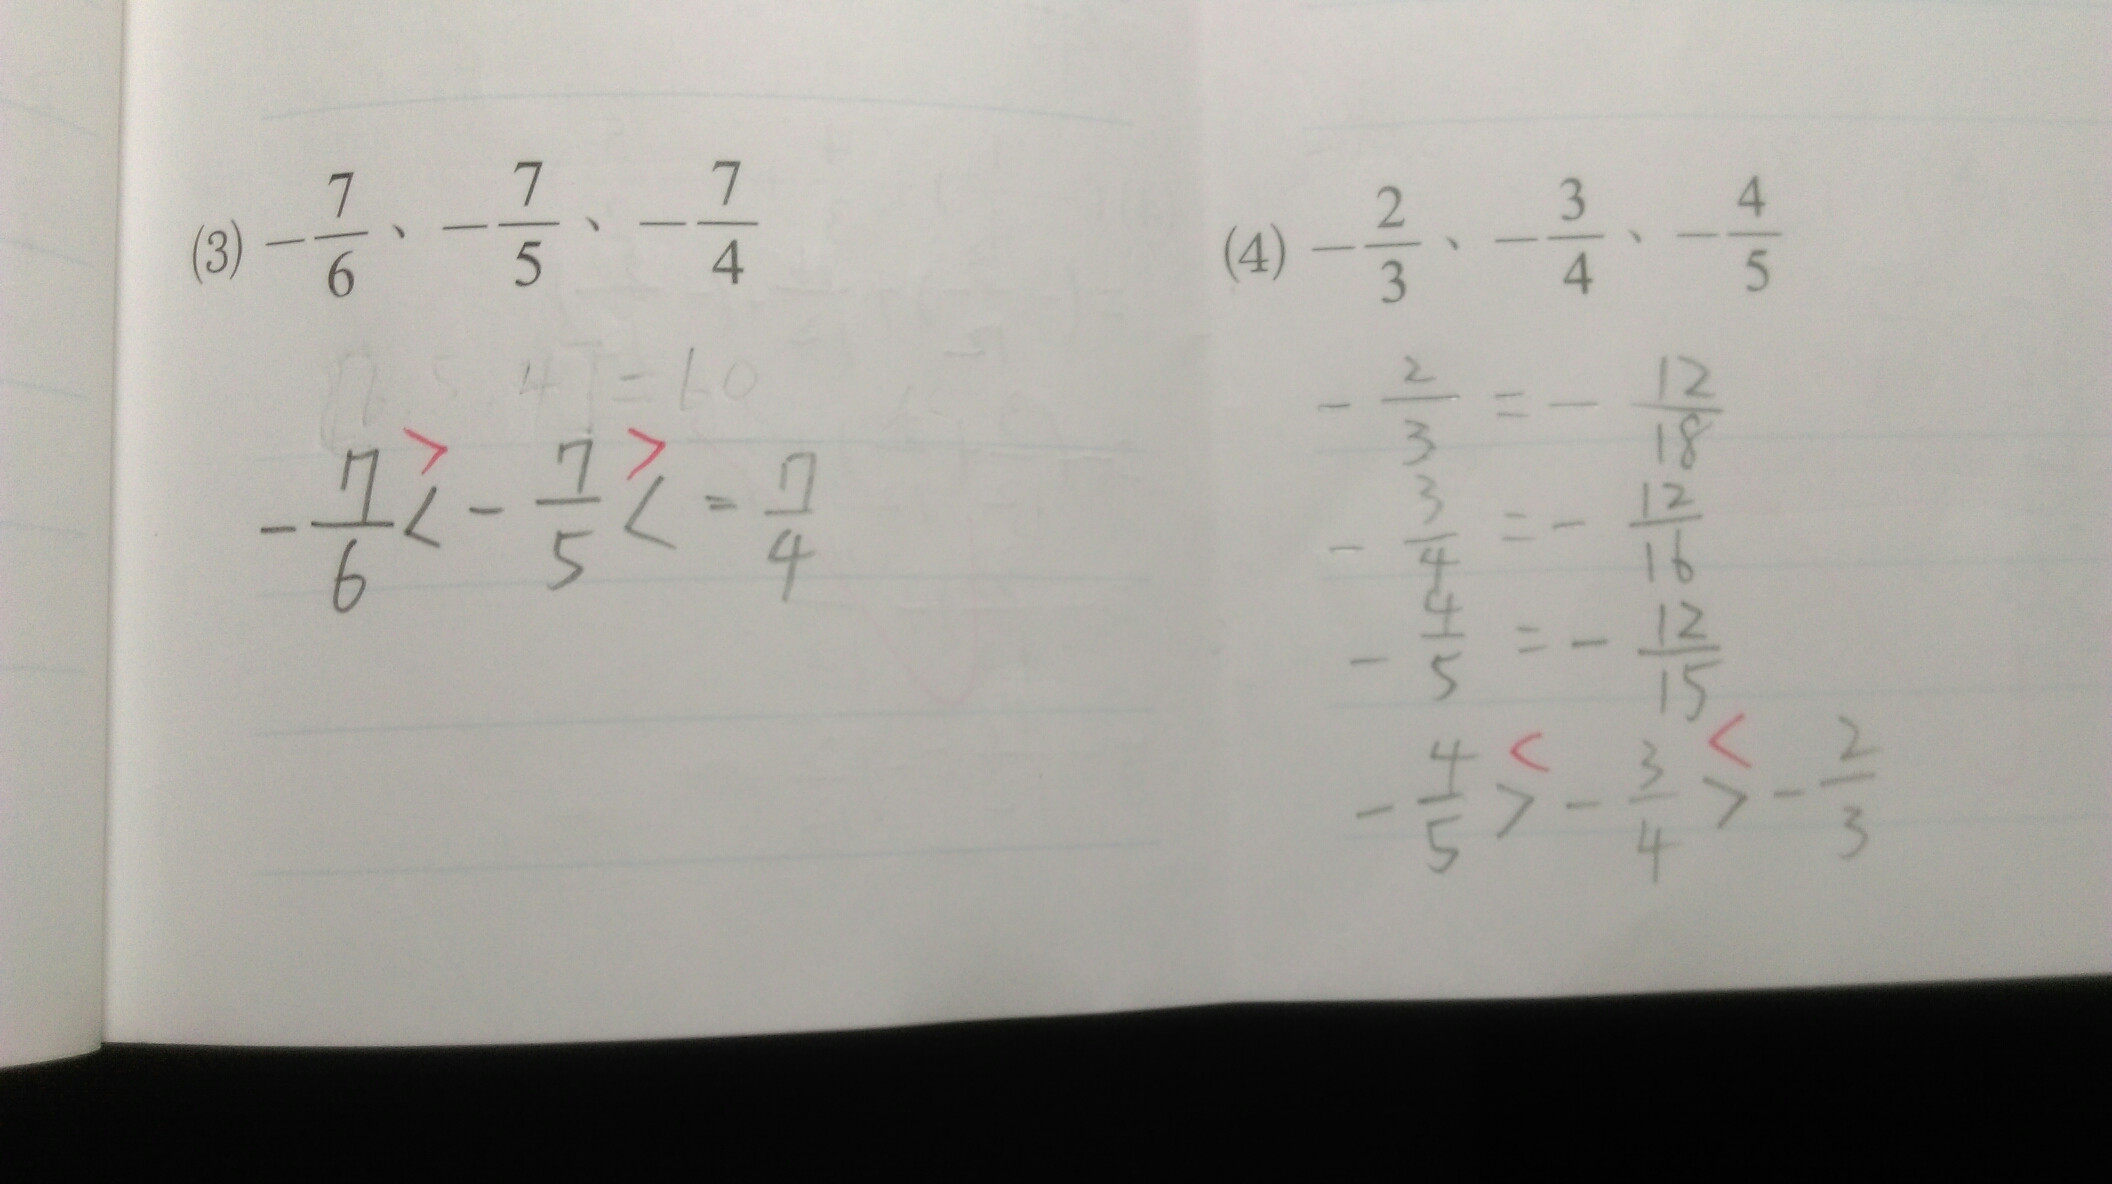 (3) -7/6、-7/5、-7/4
[6,5,4]=60
> >
-7/6 < -7/5 < -7/4
(4) -2/3、-3/4、-4/5
-2/3 = -12/18
-3/4 = -12/16
-4/5 = -12/15
< <
-4/5 > -3/4 > -2/3